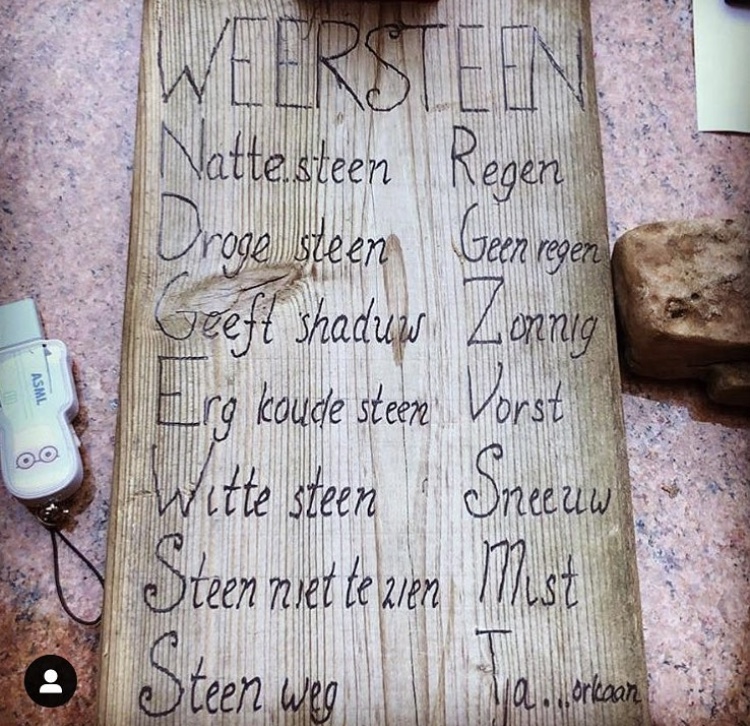 WEERSTEEN
Natte steen Regen
Droge steen Geen regen
Geeft shaduw Zonnig
Erg koude steen Vorst
Witte steen Sneeuw
Steen niet te zien Mist
Steen weg Tja...orkaan
ASML